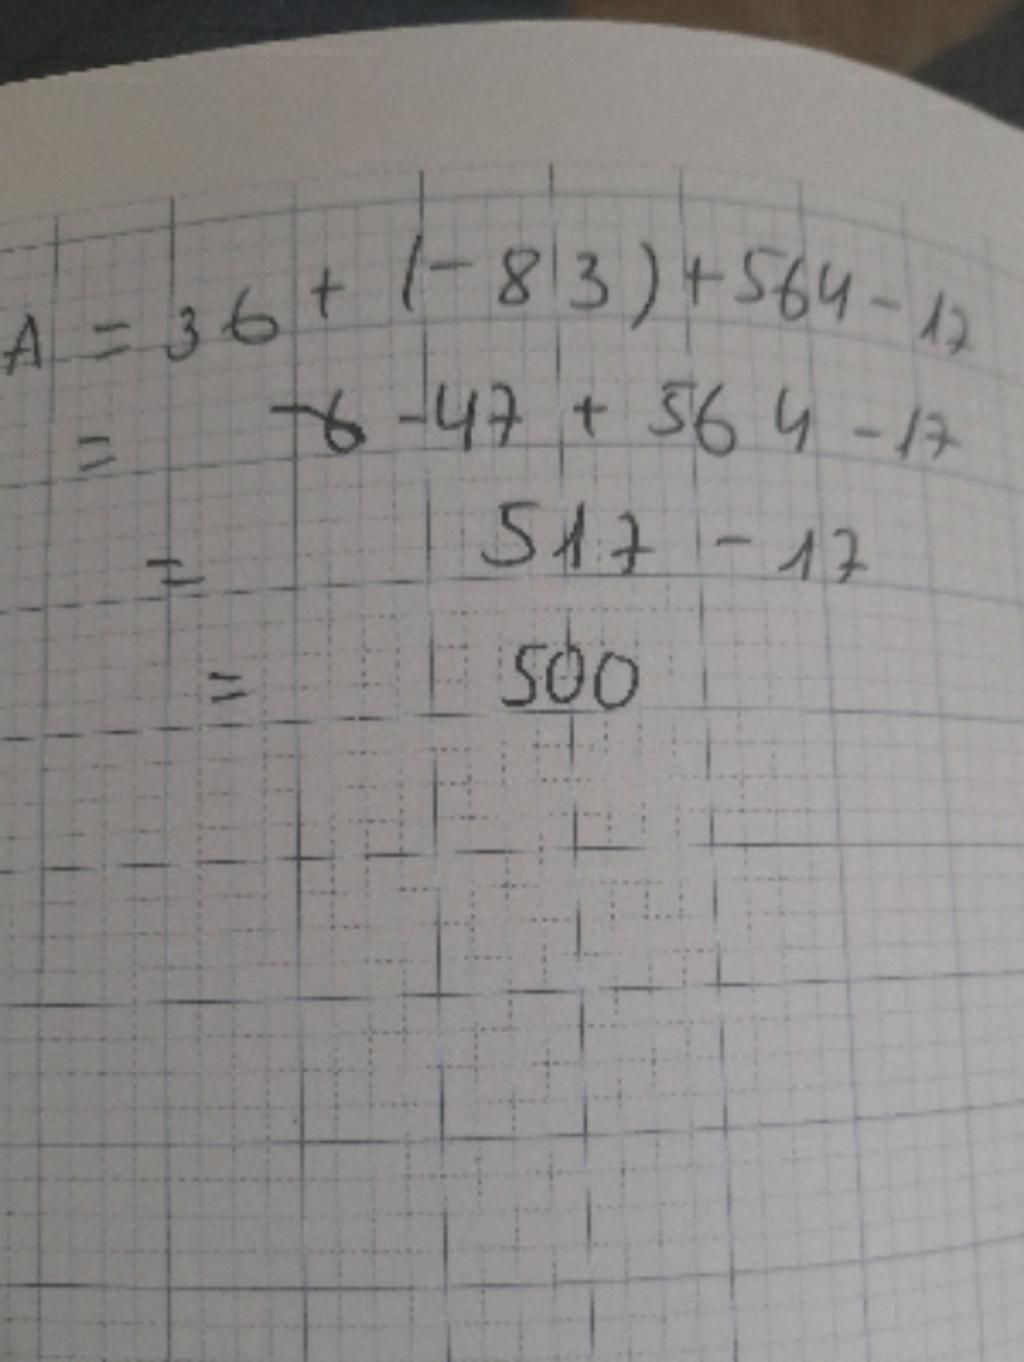 A = 36 + (-83) + 564 - 17
= -47 + 564 - 17
= 517 - 17
= 500